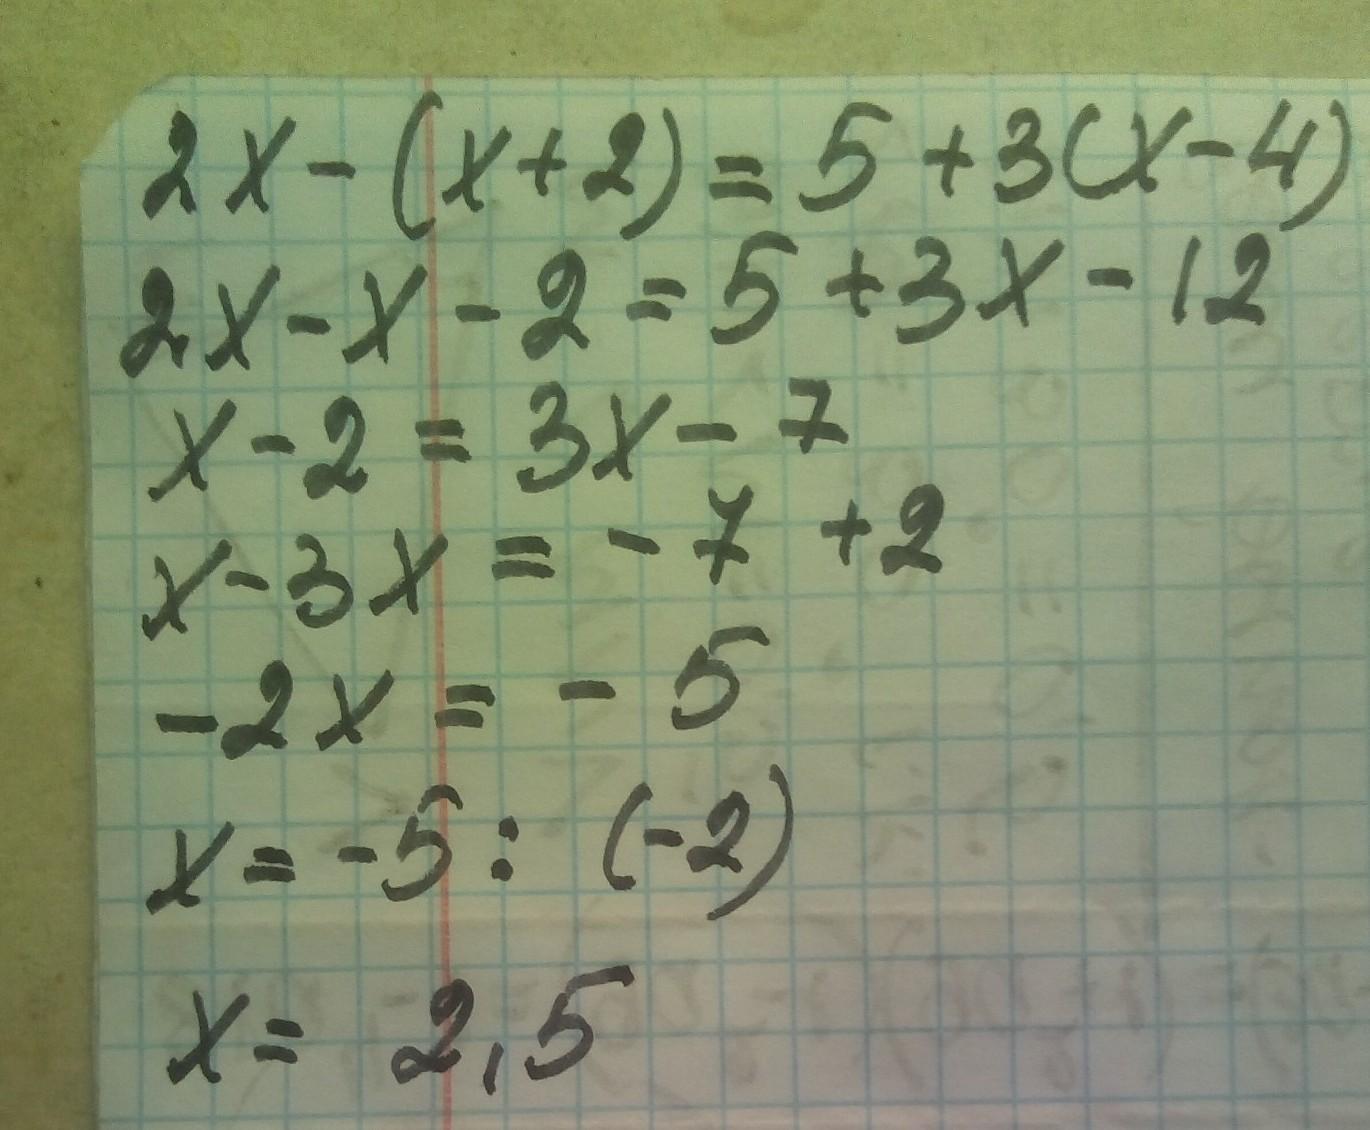 2x-(x+2)=5+3(x-4)
2x-x-2=5+3x-12
x-2=3x-7
x-3x=-7+2
-2x=-5
x=-5:(-2)
x=2,5